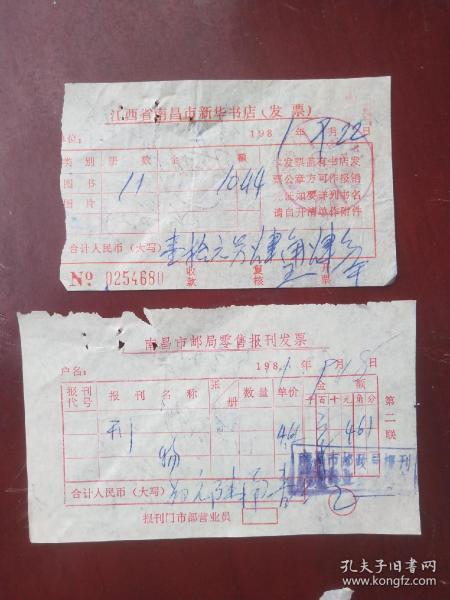 江西省南昌市新华书店(发票)
单位: 1981年8月22日
类别 册数 金额
图书 11 1044
图片
本发票盖有书店发
票公章方可作报销
凭证如要详列书名
请自开清单作附件
合计人民币(大写) 壹拾元另肆角肆分
No 0254680 收款 复核 开票
南昌市邮局零售报刊发票
户名: 1981年8月
报刊代号 报刊名称 张册 数量 单价 金额
千百十元角分
刊物 461
第二联
南昌市邮政局报刊
合计人民币(大写)
报刊门市部营业员
孔夫子旧书网
www.kongfz.com